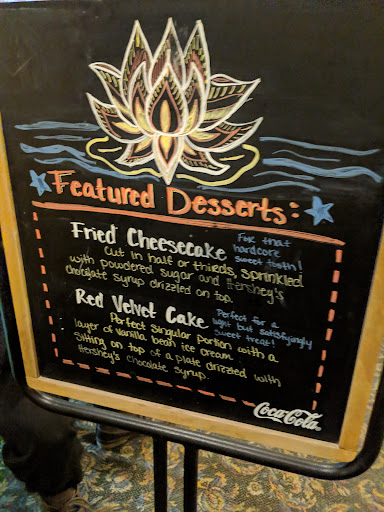 Featured Desserts:
Fried Cheesecake For that
hardcore
sweet tooth!
Cut in half or thirds, sprinkled
with powdered sugar and Hershey's
chocolate syrup drizzled on top.
Red Velvet Cake Perfect for a
light but satisfyingly
sweet treat!
Perfect singular portion with a
layer of vanilla bean ice cream.
Sitting on top of a plate drizzled with
Hershey's chocolate syrup.
Coca-Cola